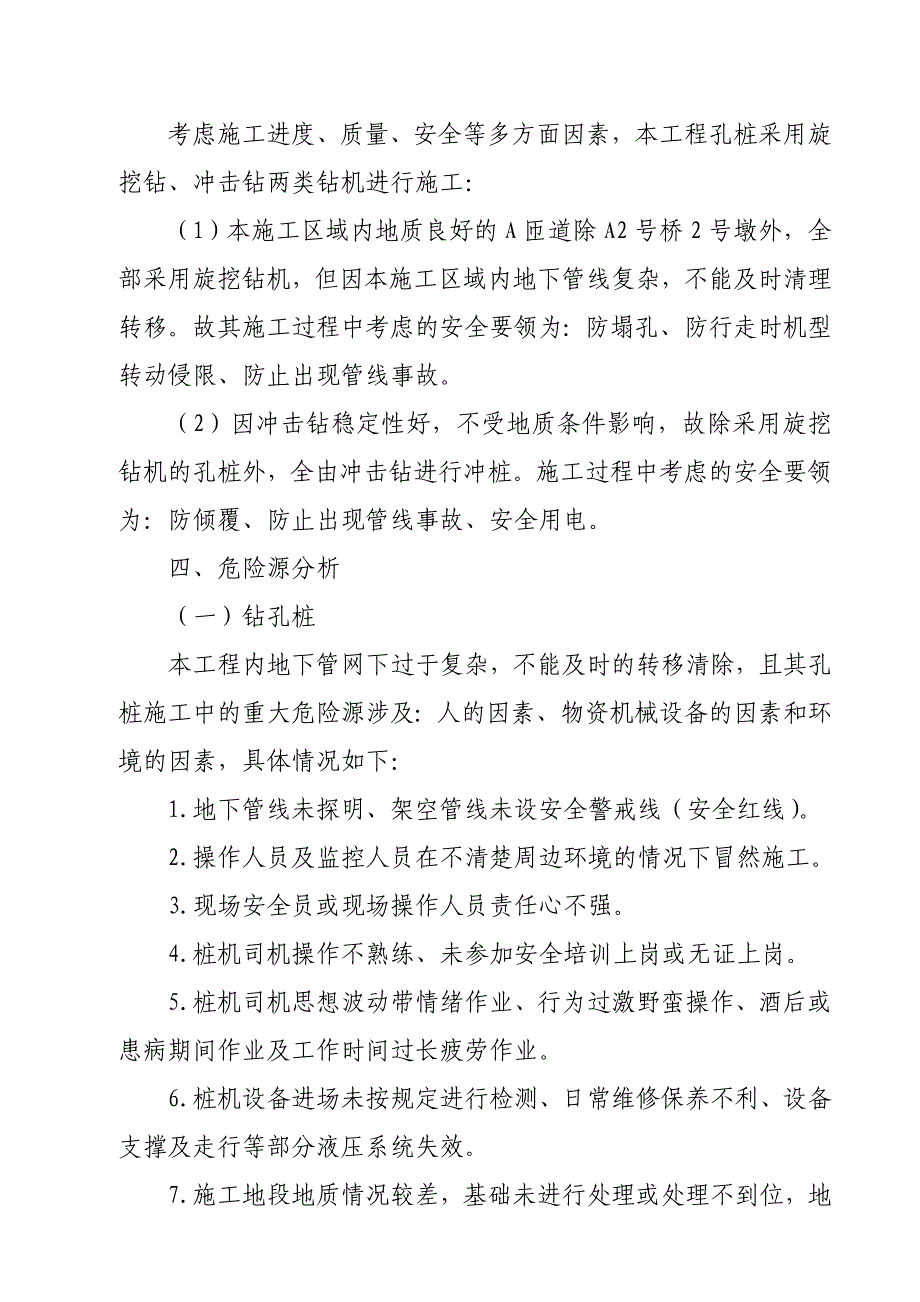 考虑施工进度、质量、安全等多方面因素，本工程孔桩采用旋
挖钻、冲击钻两类钻机进行施工：
（1）本施工区域内地质良好的 A 匝道除 A2 号桥 2 号墩外，全
部采用旋挖钻机，但因本施工区域内地下管线复杂，不能及时清理
转移。故其施工过程中考虑的安全要领为：防塌孔、防行走时机型
转动侵限、防止出现管线事故。
（2）因冲击钻稳定性好，不受地质条件影响，故除采用旋挖
钻机的孔桩外，全由冲击钻进行冲桩。施工过程中考虑的安全要领
为：防倾覆、防止出现管线事故、安全用电。
四、危险源分析
（一）钻孔桩
本工程内地下管网下过于复杂，不能及时的转移清除，且其孔
桩施工中的重大危险源涉及：人的因素、物资机械设备的因素和环
境的因素，具体情况如下：
1.地下管线未探明、架空管线未设安全警戒线（安全红线）。
2.操作人员及监控人员在不清楚周边环境的情况下冒然施工。
3.现场安全员或现场操作人员责任心不强。
4.桩机司机操作不熟练、未参加安全培训上岗或无证上岗。
5.桩机司机思想波动带情绪作业、行为过激野蛮操作、酒后或
患病期间作业及工作时间过长疲劳作业。
6.桩机设备进场未按规定进行检测、日常维修保养不利、设备
支撑及走行等部分液压系统失效。
7.施工地段地质情况较差，基础未进行处理或处理不到位，地